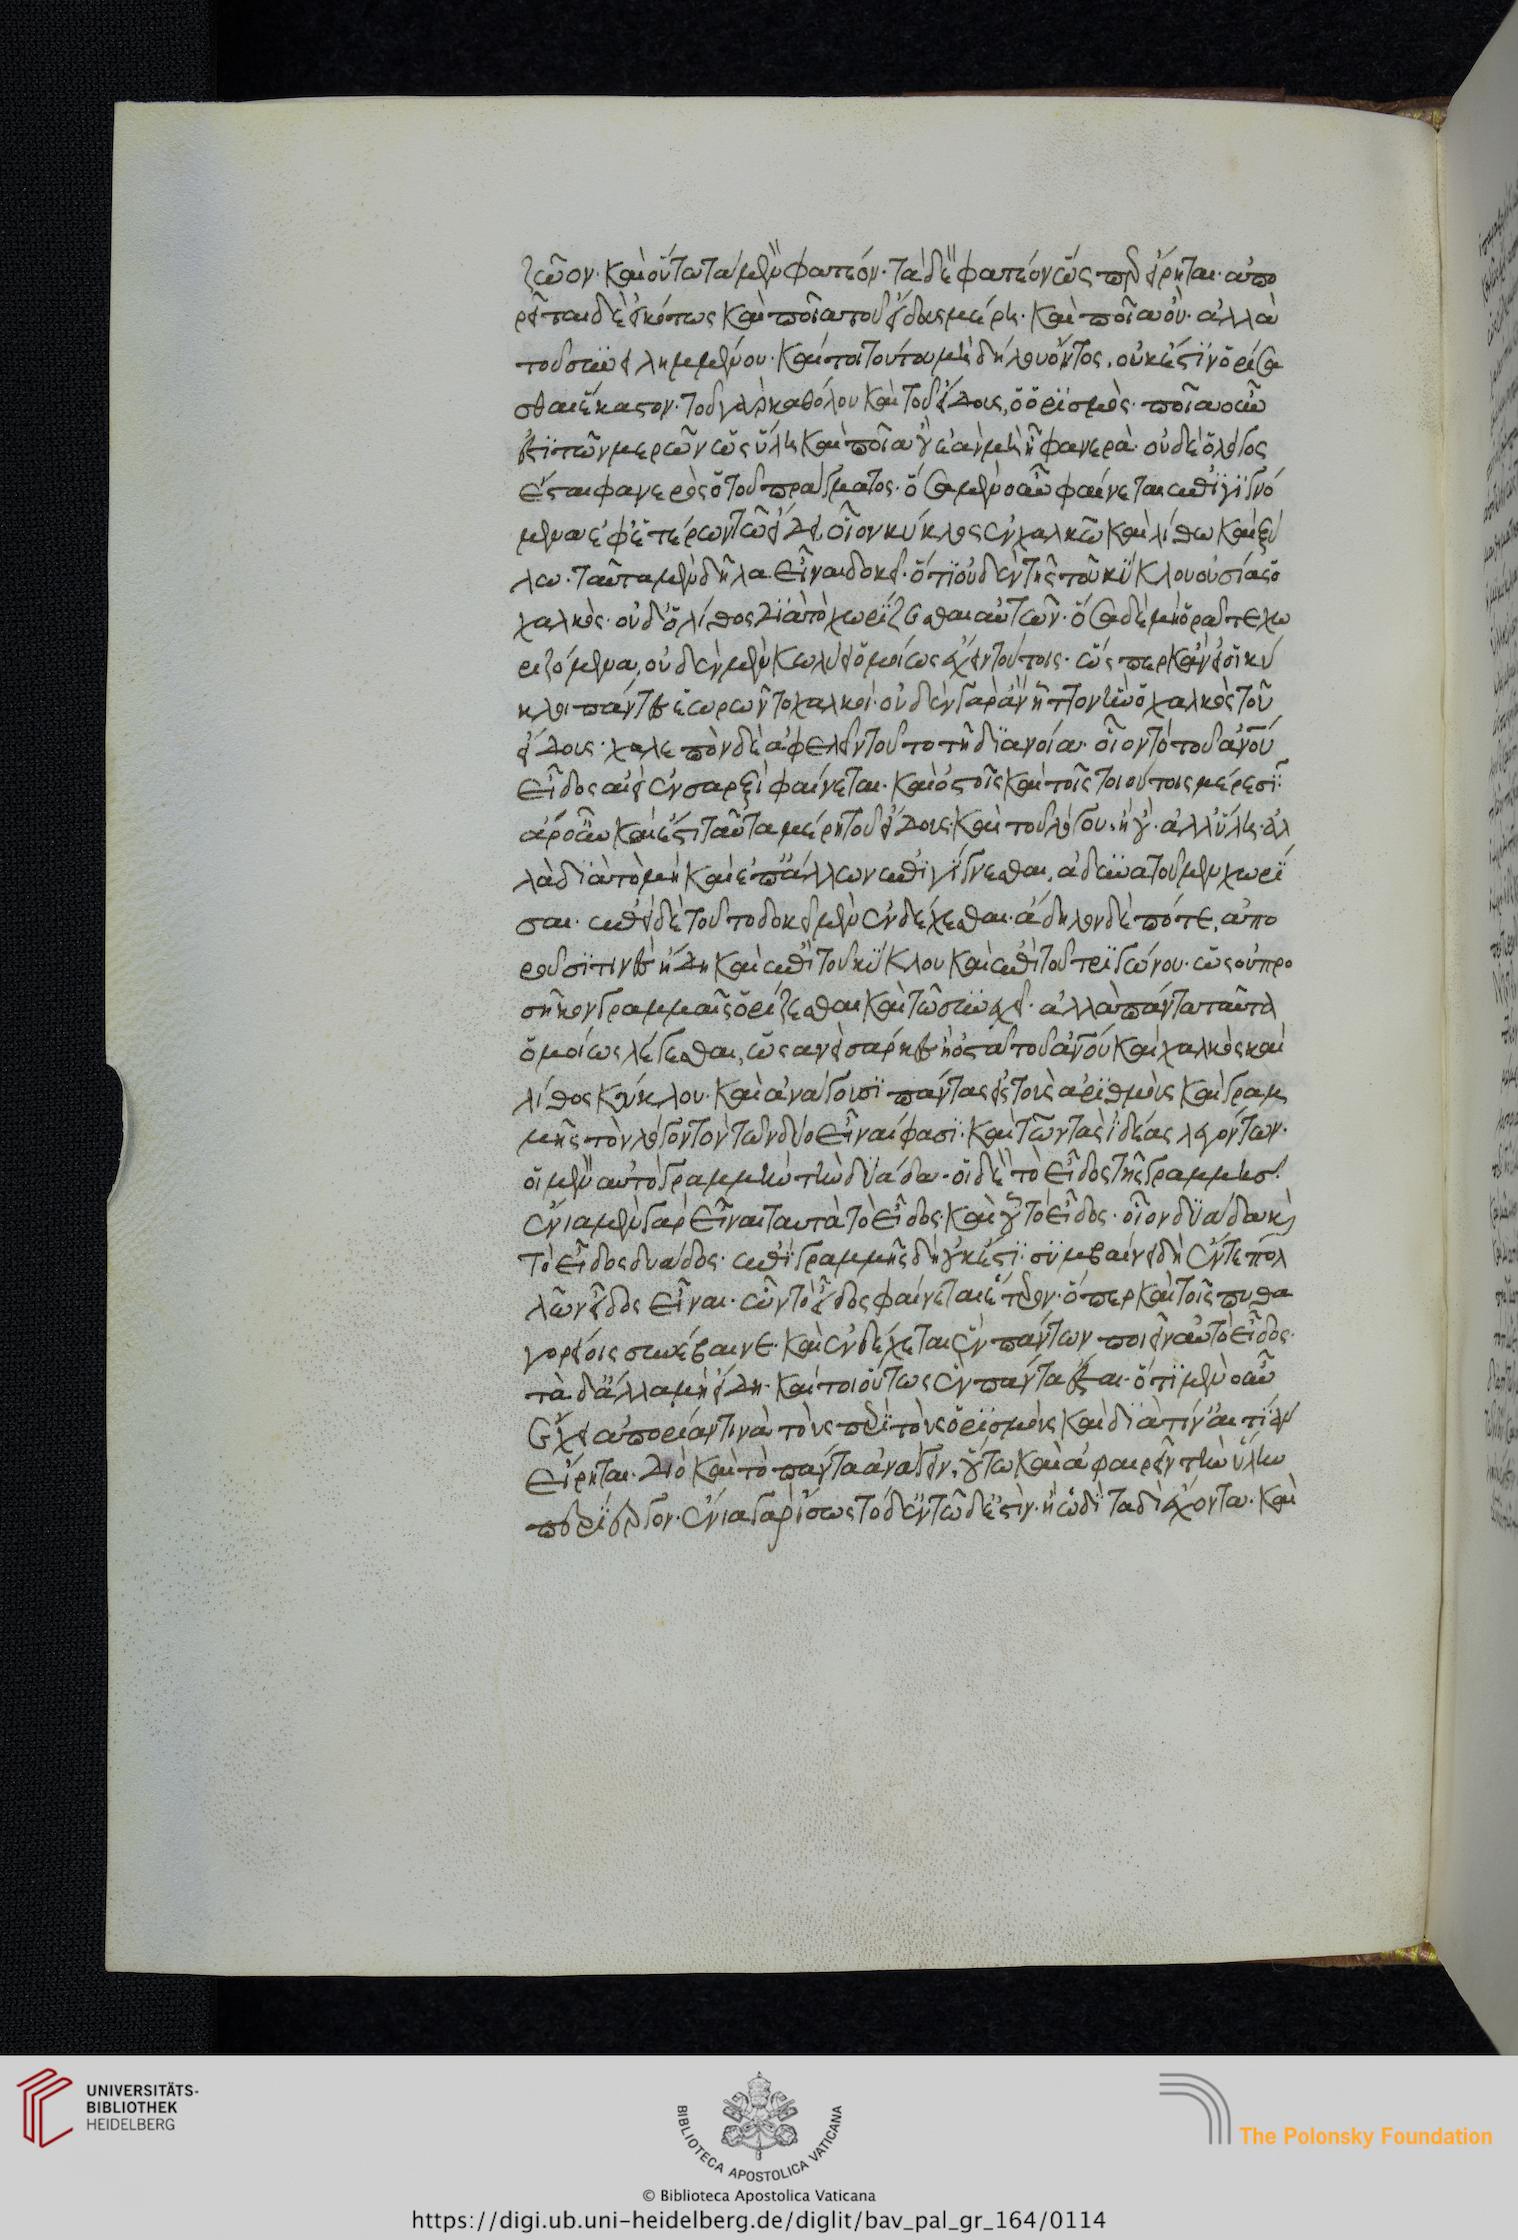 ζῶον· καὶ οὕτω τὰ μὲν οὐ φατέον· τὰ δὲ οὐ φατέον ὥσπερ εἴρηται· ἀπο
ρεῖται δὲ εἰκότως καὶ ποῖα τοῦ εἴδους μέρη· καὶ ποῖα οὐ· ἀλλὰ
τοῦ συνειλημμένου· καίτοι τούτου μὴ δήλου ὄντος, οὐκ ἔστϊν ὁρίσα
σθαι ἕκαστον· τοῦ γὰρ καθόλου καὶ τοῦ εἴδους, ὁ ὁρϊσμὸς· ποῖα οὖν
ἐστὶ τῶν μερῶν ὡς ὕλη καὶ ποῖα οὐ ἐὰν μὴ ἦ φανερὰ· οὐδὲ ὁ λόγος
ἔσται φανερὸς ὁ τοῦ πράγματος· ὅσα μὲν οὖν φαίνεται ἐπϊγϊγνό
μενα ἐφ' ἑτέρων τῶ εἴδει, οἷον κύκλος ἐν χαλκῶ καὶ λίθω καὶ ξύ
λω· ταῦτα μὲν δῆλα εἶναι δοκεῖ· ὅτϊ οὐδὲν τῆς τοῦ κύκλου οὐσίας ὁ
χαλκὸς· οὐδ' ὁ λίθος διὰ τὸ χωρίζεσθαι αὐτῶν· ὅσα δὲ μὴ ὁρᾶται χω
ριζόμενα, οὐδὲν μὲν κωλύει ὁμοίως ἔχειν τούτοις· ὥσπερ κἂν εἰ οἱ κύ
κλοι πάντες ἑωρῶντο χαλκοῖ· οὐδὲν γὰρ ἂν ἧττον ἦν ὁ χαλκὸς τοῦ
εἴδους· χαλεπὸν δὲ ἀφελεῖν τοῦτο τῆ δϊανοία· οἷον τὸ τοῦ ἀνου
εἶδος αἰεὶ ἐν σαρξὶ φαίνεται· καὶ ὀστοῖς καὶ τοῖς τοιούτοις μέρεσϊ·
ἆρ' οὖν καὶ ἐστϊ ταῦτα μέρη τοῦ εἴδους· καὶ τοῦ λόγου· ἢ οὐ· ἀλλ' ὕλη· ἀλ
λὰ δϊὰ τὸ μὴ καὶ ἐπ' ἄλλων ἐπϊγίγνεσθαι, ἀδυνατοῦμεν χωρί
σαι· ἐπεὶ δὲ τοῦτο δοκεῖ μὲν ἐνδέχεσθαι· ἄδηλον δὲ πότε, ἀπο
ροῦσϊ τινὲς ἤδη καὶ ἐπὶ τοῦ κύκλου καὶ ἐπὶ τοῦ τρϊγώνου· ὡς οὐ προ
σῆκον γραμμαῖς ὁρίζεσθαι καὶ τῶ συνεχεῖ· ἀλλὰ πάντα ταῦτα
ὁμοίως λέγεσθαι, ὡσανεὶ σάρκες ἢ ὀστᾶ τοῦ ἀνου καὶ χαλκὸς καὶ
λίθος κύκλου· καὶ ἀνάγουσϊ πάντα εἰς τοὺς ἀρϊθμοὺς καὶ γραμ
μῆς τὸν λόγον τὸν τῶν δύο εἶναι φασϊ· καὶ τῶν τὰς ἰδέας λεγόντων·
οἱ μὲν αὐτογραμμὴν τὴν δυάδα· οἱ δὲ τὸ εἶδος τῆς γραμμῆς·
ἔνια μὲν γὰρ εἶναι ταυτὰ τὸ εἶδος· καὶ οὗ τὸ εἶδος· οἷον δυάδα καὶ
τὸ εἶδος δυάδος· ἐπὶ γραμμῆς δὴ οὐκέτϊ· συμβαίνει δὴ ἕν τε πολ
λῶν εἶδος εἶναι· ὧν τὸ εἶδος φαίνεται ἕτερον· ὅπερ καὶ τοῖς πυθα
γορείοις συνέβαινε· καὶ ἐνδέχεται ἓν πάντων ποιεῖν αὐτὸ εἶδος·
τὰ δ' ἄλλα μὴ εἴδη· καίτοι οὕτως ἓν πάντα ἔσται· ὅτϊ μὲν οὖν
ἔχει ἀπορίαν τινὰ τὰ περὶ τοὺς ὁρϊσμοὺς καὶ δϊὰ τίν' αἰτίαν
εἴρηται· διὸ καὶ τὸ πάντα ἀνάγειν, οὕτω καὶ ἀφαιρεῖν τὴν ὕλην
περίεργον· ἔνια γὰρ ἴσως τόδ' ἐν τῶδ' ἐστὶν· ἢ ὡδὶ ταδὶ ἔχοντα· καὶ
UNIVERSITÄTS-
BIBLIOTHEK
HEIDELBERG
BIBLIOTECA APOSTOLICA VATICANA
The Polonsky Foundation
© Biblioteca Apostolica Vaticana
https://digi.ub.uni-heidelberg.de/diglit/bav_pal_gr_164/0114